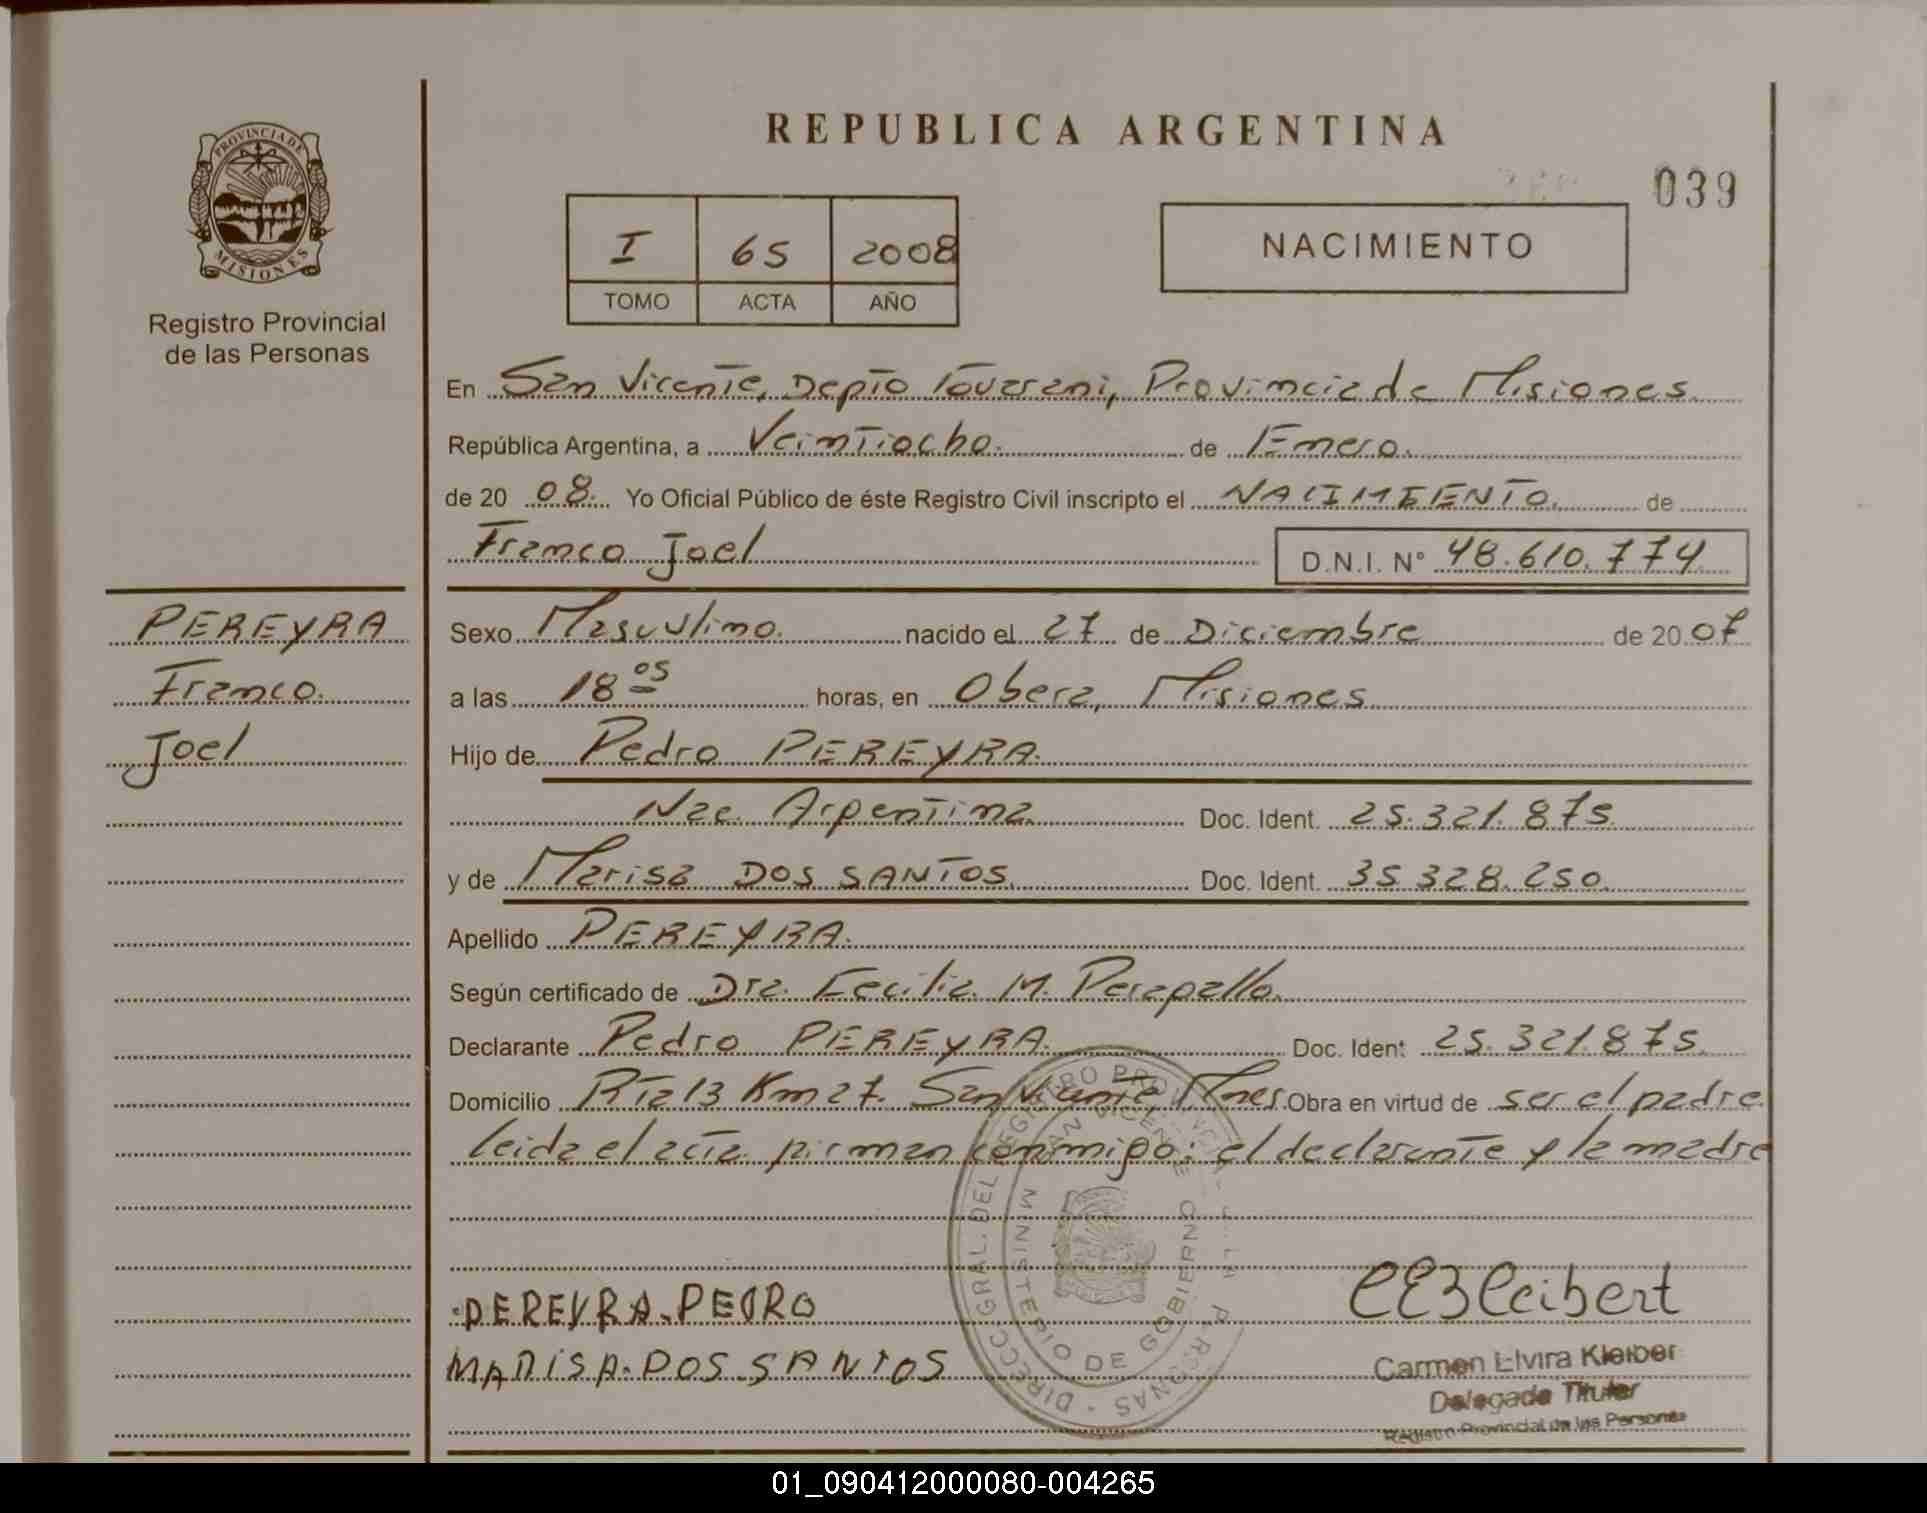 REPUBLICA ARGENTINA
039
PROVINCIA DE MISIONES
Registro Provincial
de las Personas
I 65 2008
TOMO ACTA AÑO
NACIMIENTO
En San Vicente, Depto Guarani, Provincia de Misiones.
República Argentina, a Veintiocho. de Enero.
de 20 08. Yo Oficial Público de éste Registro Civil inscripto el NACIMIENTO. de
Franco Joel D.N.I. N° 48.610.774
PEREYRA
Franco.
Joel
Sexo Masculino. nacido el 27 de Diciembre de 20 07
a las 18 05 horas, en Obera, Misiones
Hijo de Pedro PEREYRA.
Nac. Argentina Doc. Ident. 25.321.875
y de Marisa DOS SANTOS. Doc. Ident. 35.328.250.
Apellido PEREYRA.
Según certificado de Dra. Cecilia M.
Declarante Pedro PEREYRA. Doc. Ident 25.321.875.
Domicilio Rta 13 Km 27. San Vicente Mnes. Obra en virtud de ser el padre
leida el acta firman conmigo: el declarante y la madre
DIRECC. GRAL. DEL REGISTRO PROVINCIAL DE LAS PERSONAS
SAN VICENTE
MINISTERIO DE GOBIERNO
PEREYRA. PEDRO
MARISA. DOS SANTOS
Carmen Elvira Kleiber
Delegada Titular
Registro Provincial de las Personas
01_090412000080-004265